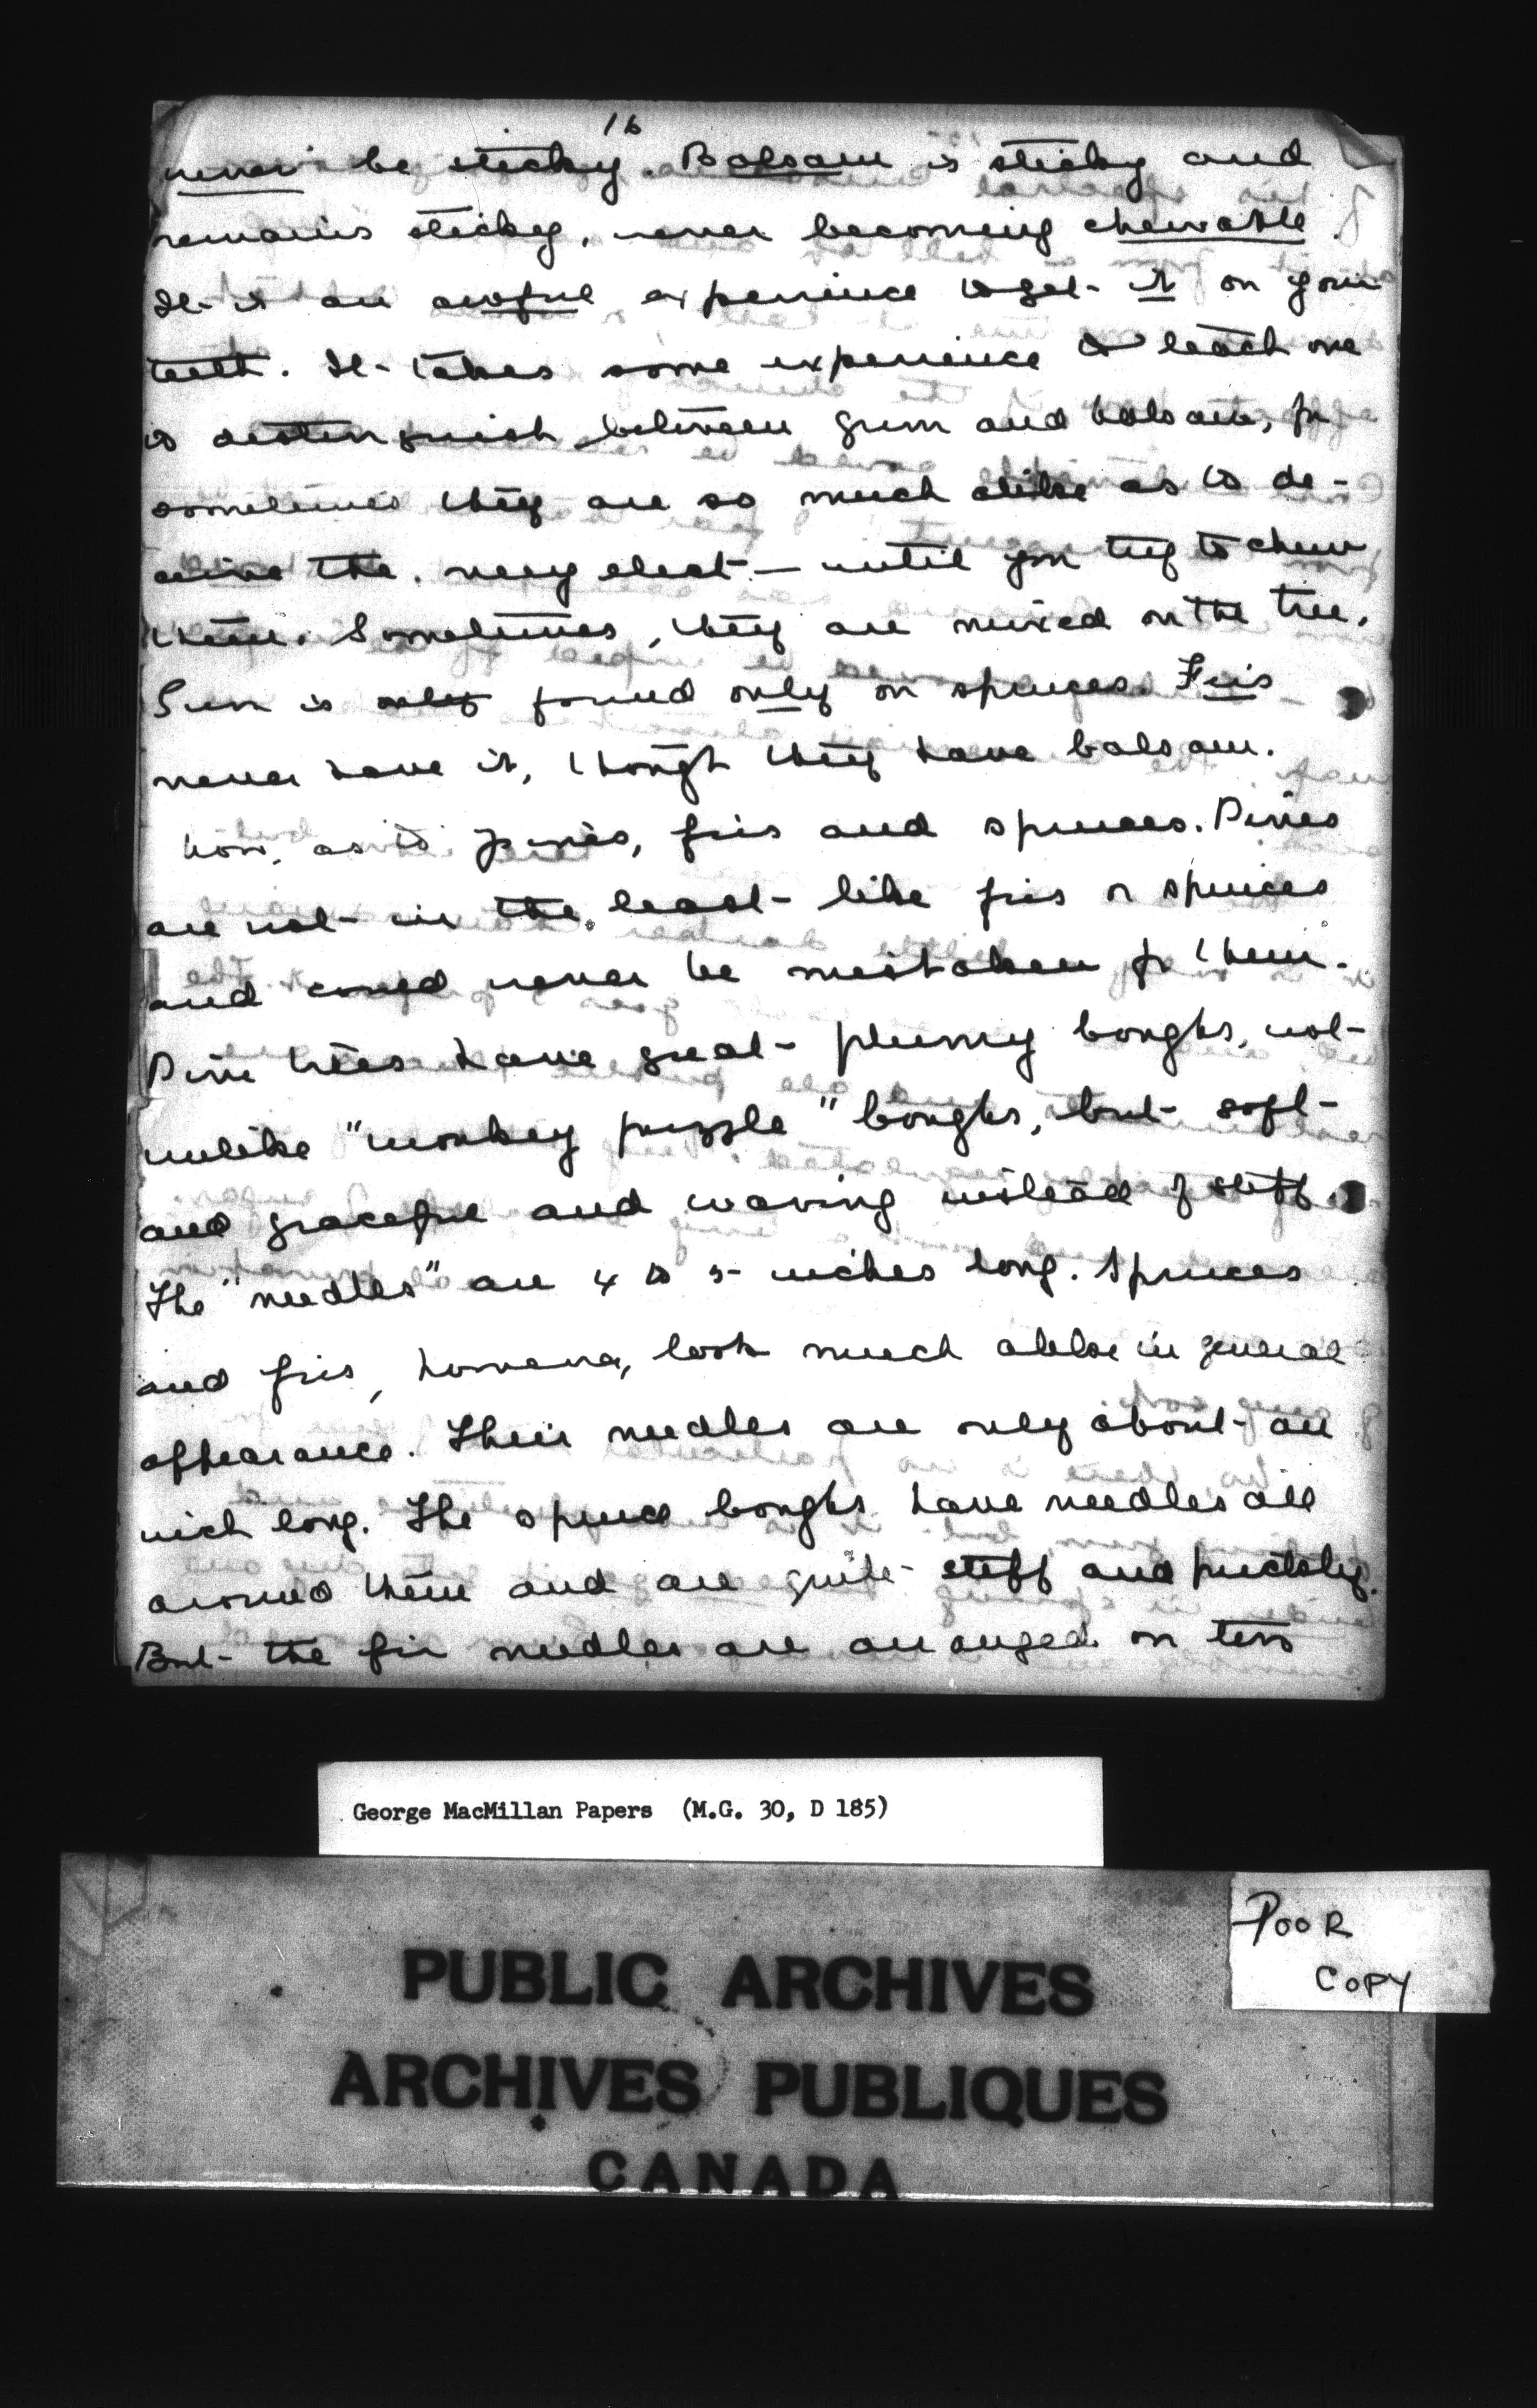 16
never be sticky. Balsam is sticky and
remains sticky, never becoming chewable.
It is an awful experience to get it on your
teeth. It takes some experience to teach one
to distinguish between gum and balsam, for
sometimes they are so much alike as to de-
ceive the very elect — until you try to chew
them. Sometimes, they are mixed on the tree.
Gum is only found only on spruces. Firs
never have it, though they have balsam.
Now, as to pines, firs and spruces. Pines
are not in the least like firs or spruces
and could never be mistaken for them.
Pine trees have great plumy boughs, not
unlike "monkey puzzle" boughs, but soft
and graceful and waving instead of stiff.
The "needles" are 4 to 5 inches long. Spruces
and firs, however, look much alike in general
appearance. Their needles are only about an
inch long. The spruce boughs have needles all
around them and are quite stiff and prickly.
But the fir needles are arranged on two
George MacMillan Papers (M.G. 30, D 185)
POOR
COPY
PUBLIC ARCHIVES
ARCHIVES PUBLIQUES
CANADA